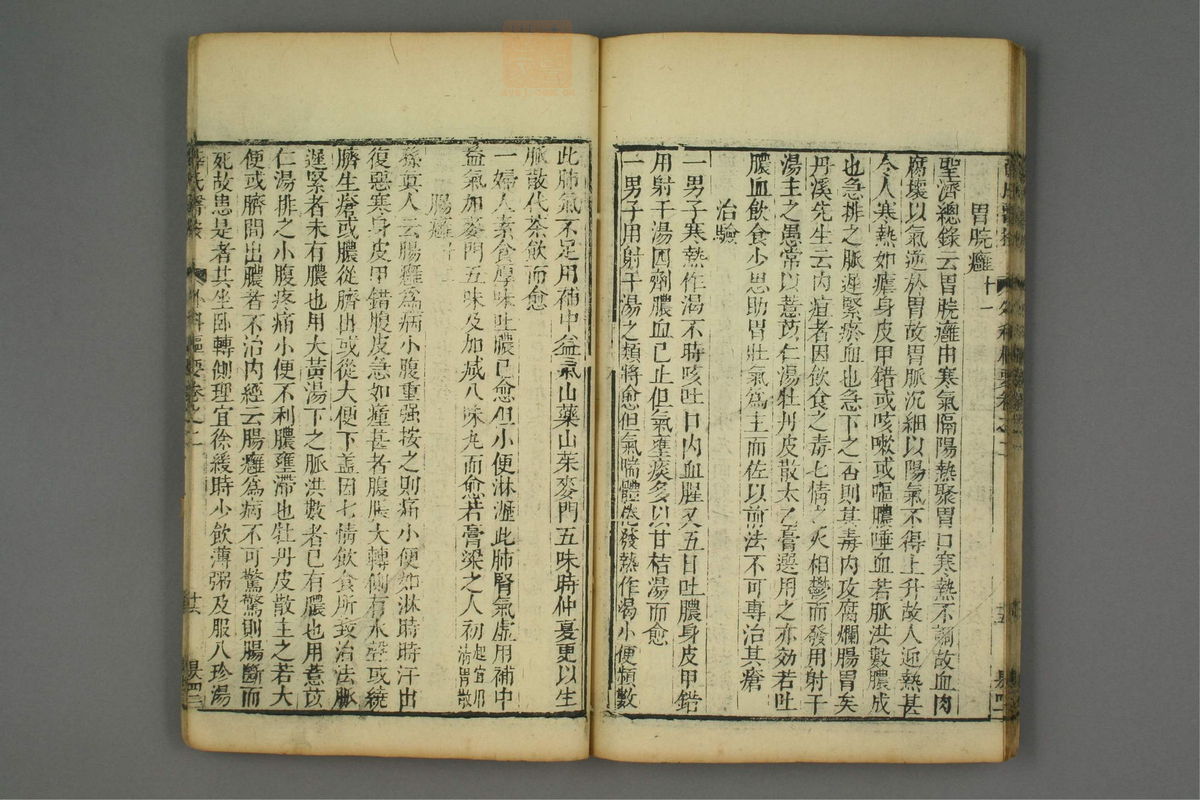 胃脘癰十一
聖濟總錄云胃脘癰由寒氣隔陽熱聚胃口寒熱不調故血肉
腐壞以氣逆於胃故胃脈沉細以陽氣不得上升故人迎熱甚
令人寒熱如瘧身皮甲錯或咳嗽或嘔膿唾血若脈洪數膿成
也急排之脈遲緊瘀血也急下之否則其毒内攻腐爛腸胃矣
丹溪先生云内疽者因飲食之毒七情之火相鬱而發用射干
湯主之愚常以薏苡仁湯牡丹皮散太乙膏選用之亦効若吐
膿血飲食少思助胃壯氣爲主而佐以前法不可專治其瘡
治驗
一男子寒熱作渴不時咳吐口内血腥又五日吐膿身皮甲錯
用射干湯四劑膿血已止但氣壅痰多以甘桔湯而愈
一男子用射干湯之類將愈但氣喘體倦發熱作渴小便頻數
此肺氣不足用補中益氣山藥山茱麥門五味時仲夏更以生
脈散代茶飲而愈
一婦人素食厚味吐膿已愈但小便淋瀝此肺腎氣虛用補中
益氣加麥門五味及加减八味丸而愈若膏粱之人初起宜用清胃散
腸癰十二
孫真人云腸癰爲病小腹重强按之則痛小便如淋時時汗出
復惡寒身皮甲錯腹皮急如腫甚者腹脹大轉側有水聲或繞
臍生瘡或膿從臍出或從大便下盖因七情飲食所致治法脈
遲緊者未有膿也用大黄湯下之脈洪數者已有膿也用薏苡
仁湯排之小腹疼痛小便不利膿壅滯也牡丹皮散主之若大
便或臍間出膿者不治内經云腸癰爲病不可驚驚則腸斷而
死故患是者其坐卧轉側理宜徐緩時少飲薄粥及服八珍湯
薛氏醫按 外科樞要卷之二 十六